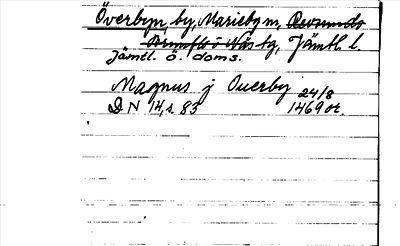 Överbyn, by, Marieby sn, Revsunds
Brunflo o Näs tg, Jämtl. l.
Jämtl. ö. doms.
Magnus j Ouerby 24/8
DN 14, s. 83 1469 or.